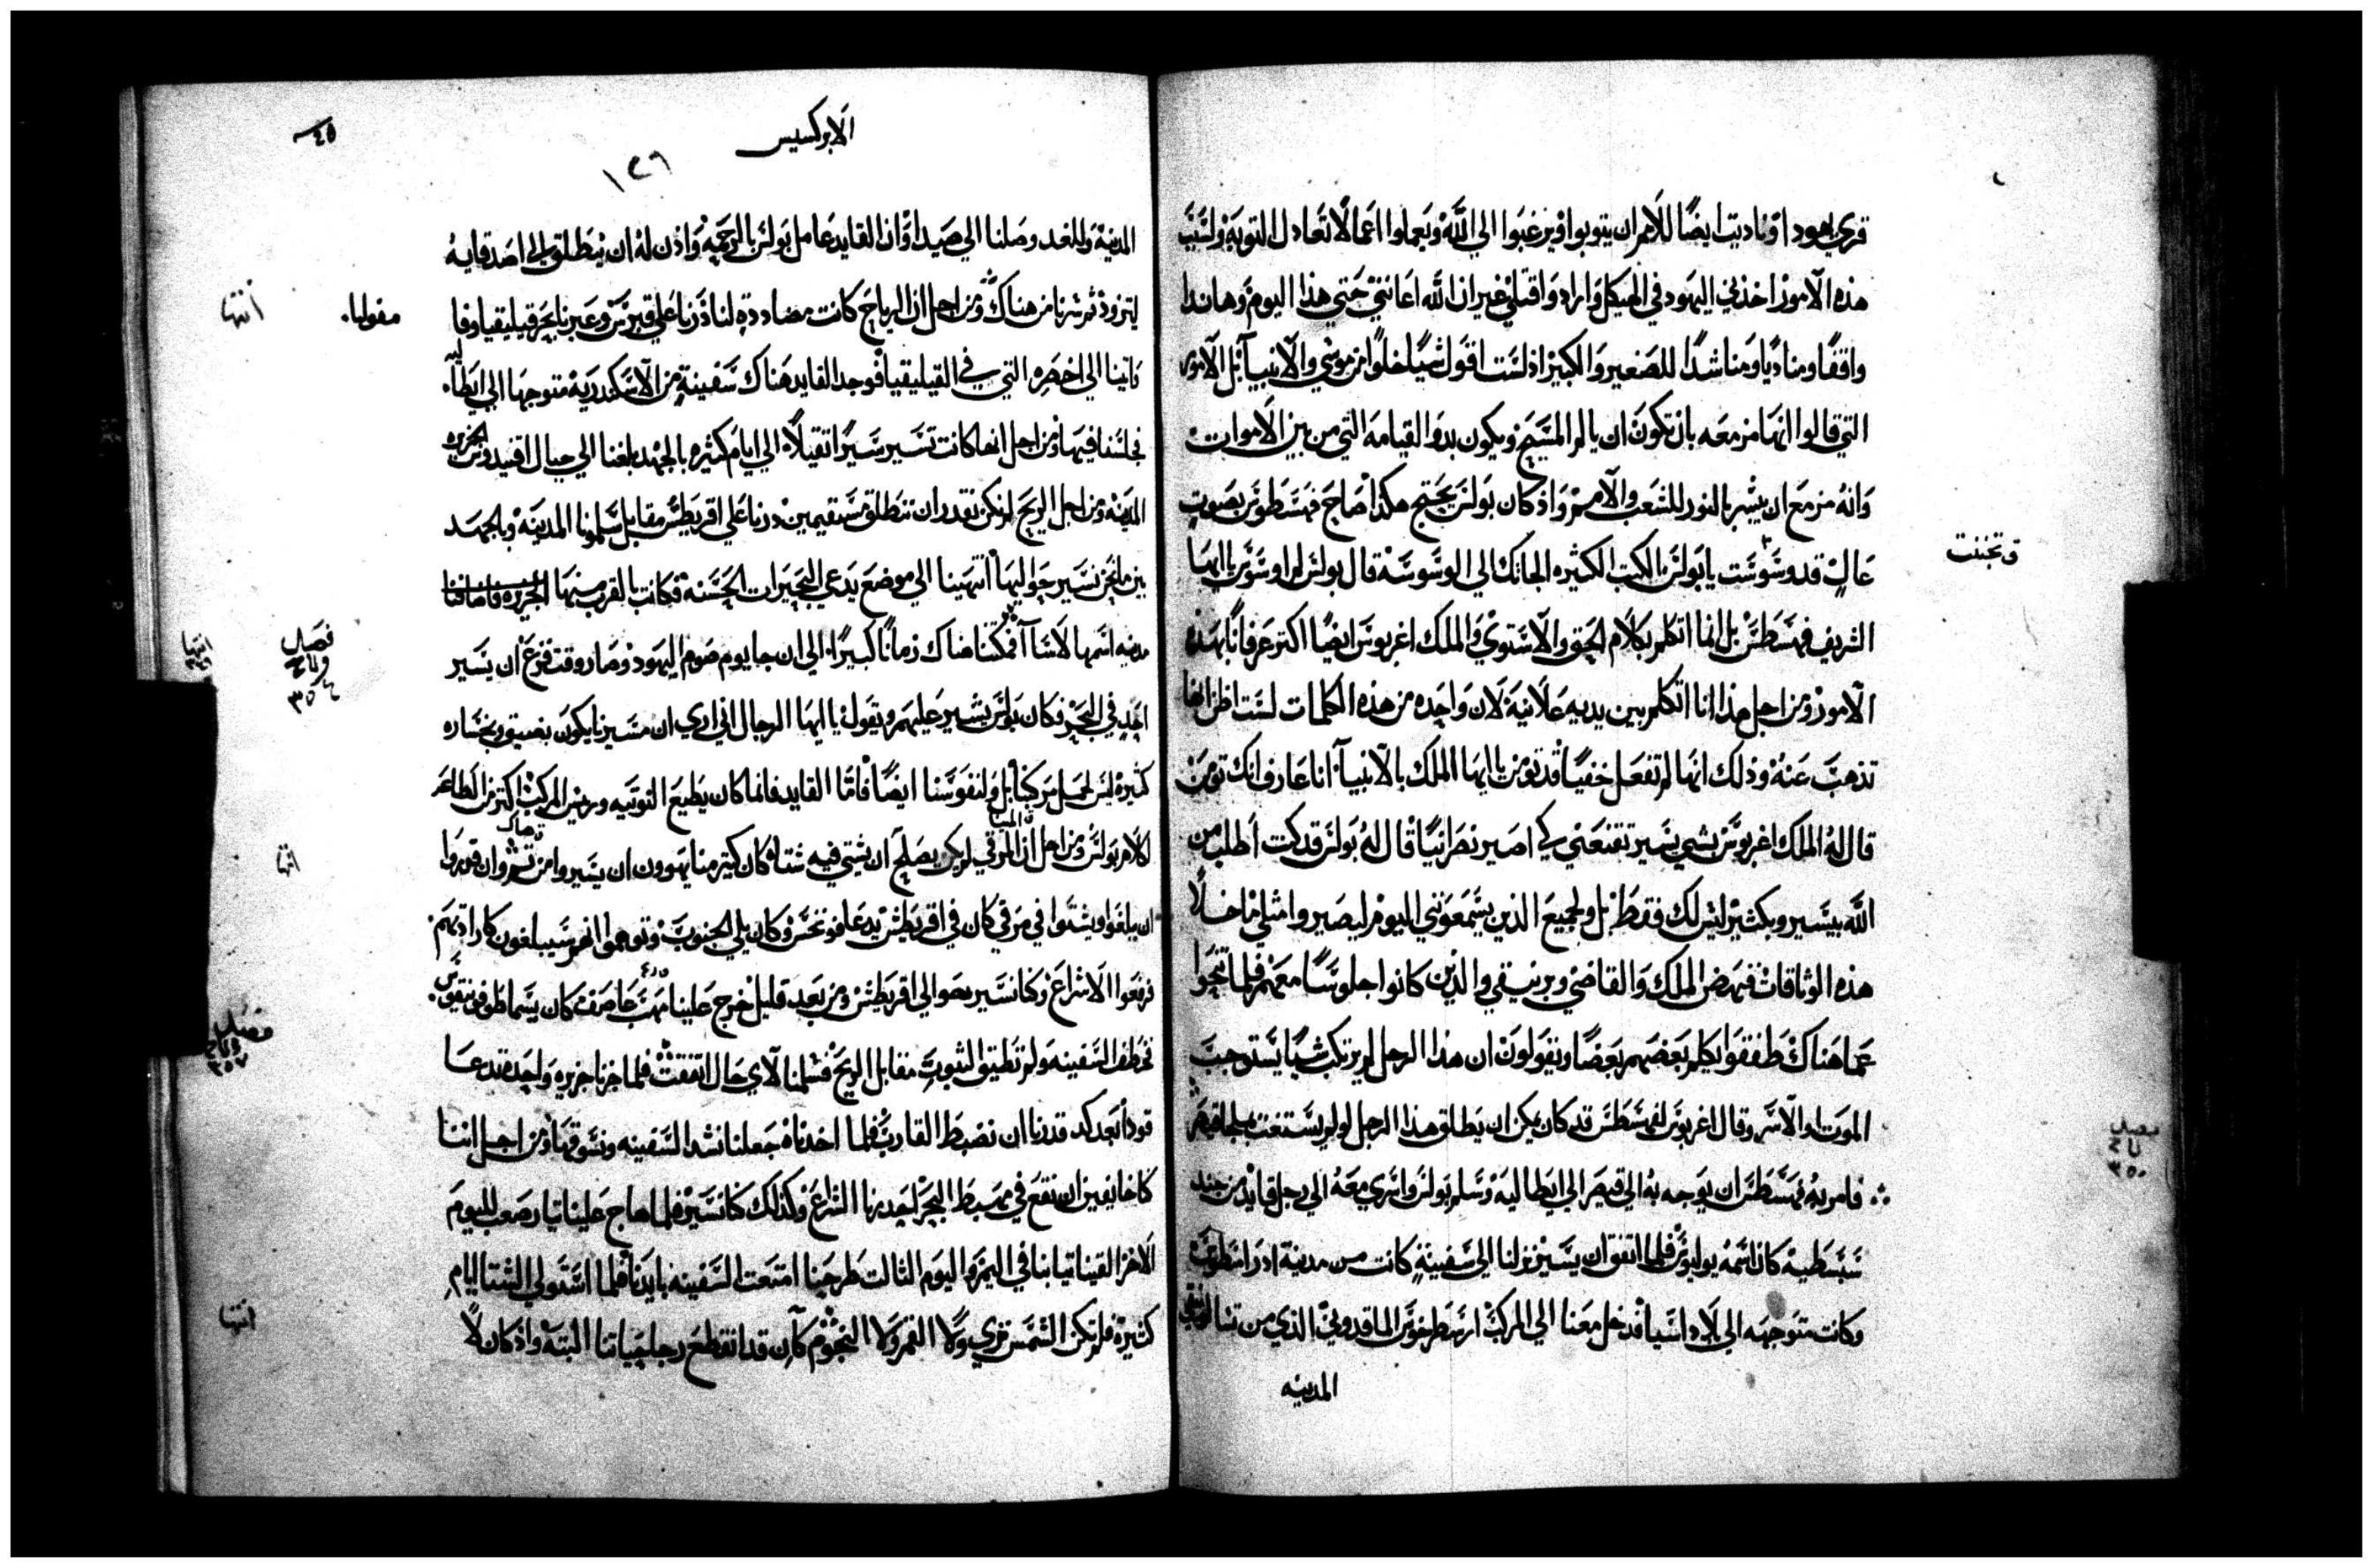 قري يهودا وناديت ايضًا للامم ان يتوبوا ويرغبوا الي الله ويعملوا اعمالًا تعادل التوبه ولسبب
هذه الامور اخذني اليهود في الهيكل وارادوا قتلي غير ان الله اعانني حتي هذا اليوم وهاندا
واقفًا ومناديًا ومناشدًا للصغير والكبير اذ لست اقول شيًا خلوًا من موسي والانبيآ بل الامور
التي قالوا انها مزمعه بان تكون ان يالم المسيح ويكون بدو القيامه التي من بين الاموات
وانه مزمع ان يبشر بالنور للشعب والامم واذ كان بولس يحتج هكذا صاح فهسطوس بصوت
عالٍ قد وسوست يا بولس الكتب الكثيره الجاتك الي الوسوسه قال بولس لم اوسوس يا ايها
وتجننت
الشريف فهسطس بل انما اتكلم بكلام الحق والاستوي والملك اغربوس ايضًا اكتر عرفانًا بهذه
الامور ومن اجل هذا انا اتكلم بين يديه علانية لان واحده من هذه الكلمات لست اظن انها
تذهب عنه وذلك انها لم تفعل خفيًا قد تومن يا ايها الملك بالانبيآ انا عارف انك تومن
قال له الملك اغربوس بشي يسير تقنعني كي اصير نصرانيًا قال له بولس قد كنت اطلب من
الله بيسير وبكثير ليس لك فقط بل ولجميع الذين يسمعونني اليوم ليصيروا مثلي ما خلا
هذه الوثاقات فنهض الملك والقاضي وبرنيقي والذين كانوا جلوسًا معهم فلما تنحوا
عما هناك طفقوا يكلم بعضهم بعضًا ويقولون ان هذا الرجل لم يرتكب شيًا يستوجب
الموت او الاسر وقال اغربوس لفهسطس قد كان يمكن ان يطلق هذا الرجل لو لم يستغث بملجا قيصر
فصل
٣٥٥
فامر به فهسطس ان يوجه به الي قيصر الي ايطاليه وسلم بولس واسري معه الي رجل قايد من جند
سبسطيه كان اسمه يوليوس فلما اتفق ان يسير نزلنا الي سفينة كانت من مدينة ادرامنطوس
وكانت متوجهه الي بلاد اسيا فدخل معنا الي المركب ارسطرخوس الماقدوني الذي من تسالونيقي
المدينه
الابركسيس
١٢٦
٤٥
المدينه وللغد وصلنا الي صيدا وان القايد عامل بولس بالرحمه واذن له ان ينطلق الي اصدقايه
ليتزود ثم سرنا من هناك ومن اجل ان الرياح كانت مضاددة لنا درنا علي قبرس وعبرنا بحر قيليقيا وفا
مفوليا.
انتها
واتينا الي اخصره التي في القيليقيا فوجد القايد هناك سفينة من الاسكندريه متوجها الي ايطاليه
فجلسنا فيها ومن اجل انها كانت تسير سيرًا ثقيلًا الي ايام كثيره بالجهد بلغنا الي حيال اقنيدوس الجزيره
المدينه ومن اجل الريح لم نكن نقدر ان ننطلق مستقيمين درنا علي اقريطس مقابل سلمونا المدينه وبالجهد
بين ما نحن نسير حواليها انتهينا الي موضع يدعي البحيرات الحسنه وكانت بالقرب منها
مدينه اسمها لاسآ فمكثنا هناك زمانًا كبيرًا. الي ان جا يوم صوم اليهود وصار وقت فزع ان يسير
فصل
انتها
احد في البحر فكان بولس يشير عليهم ويقول يا ايها الرجال اني اري ان مسيرنا يكون بضيق وبخساره
كثيره ليس لحمل مركبنا بل ولنفوسنا ايضًا فاما القايد فانما كان يطيع النوتيه وريس المركب اكتر من الطاعه
لكلام بولس ومن اجل ان المرقي لم يكن يصلح ان يشتي فيه شتاه كان كتير منا يهوون ان يسيروا من ثم وان قدروا
انتها
ان يبلغوا ويشتوا في مرقي كان في اقريطش يدعا فونخس وكان يلي الجنوب وتوهموا انهم سيبلغون كارادتهم
فرفعوا الاشراع وكنا نسير حوالي اقريطش ومن بعد قليل خرج علينا مهب عاصف كان يسما طوفونيقوس.
فصل
٣٥٧
فخطف السفينه ولم تطيق الثبوت مقابل الريح فسلمنا لاي حال اتفقت فلما جزنا جزيره واحده تدعا
قودا بعد كد قدرنا ان نضبط القارب فلما اخذناه جعلنا نشد السفينه ونوسقها ومن اجل اننا
كنا خايفين ان نقع في مهبط البحر احدرنا الشراع وكذلك كنا نسير فلما هاج علينا تيار صعب لليوم
الاخر القينا ثيابنا في اليم واليوم الثالث طرحنا امتعت السفينه بايدنا فلما استولي الشتا ايام
انتها
كثيرة فلم تكن الشمس تري ولا القمر ولا النجوم كان قد انقطع رجا حياتنا البته واذ كان لا